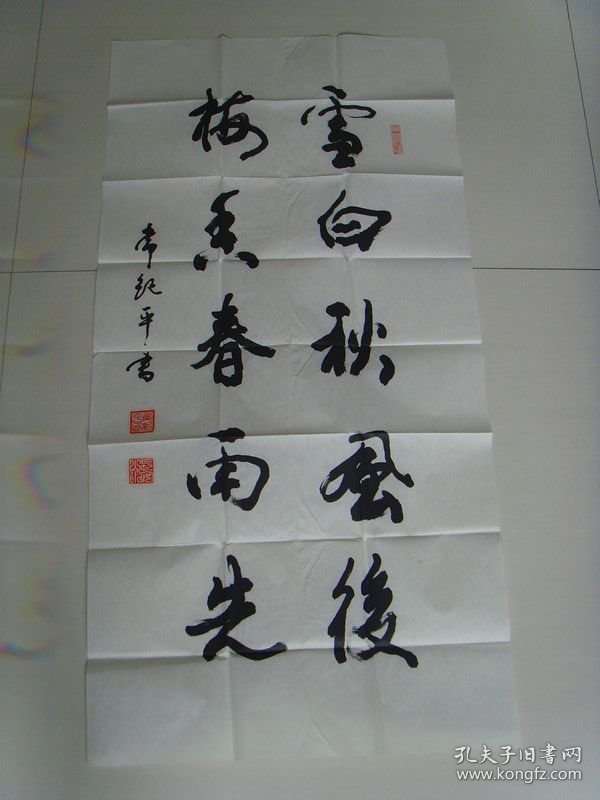 雪白秋風後
梅香春雨先
常纪平书
孔夫子旧書网
www.kongfz.com